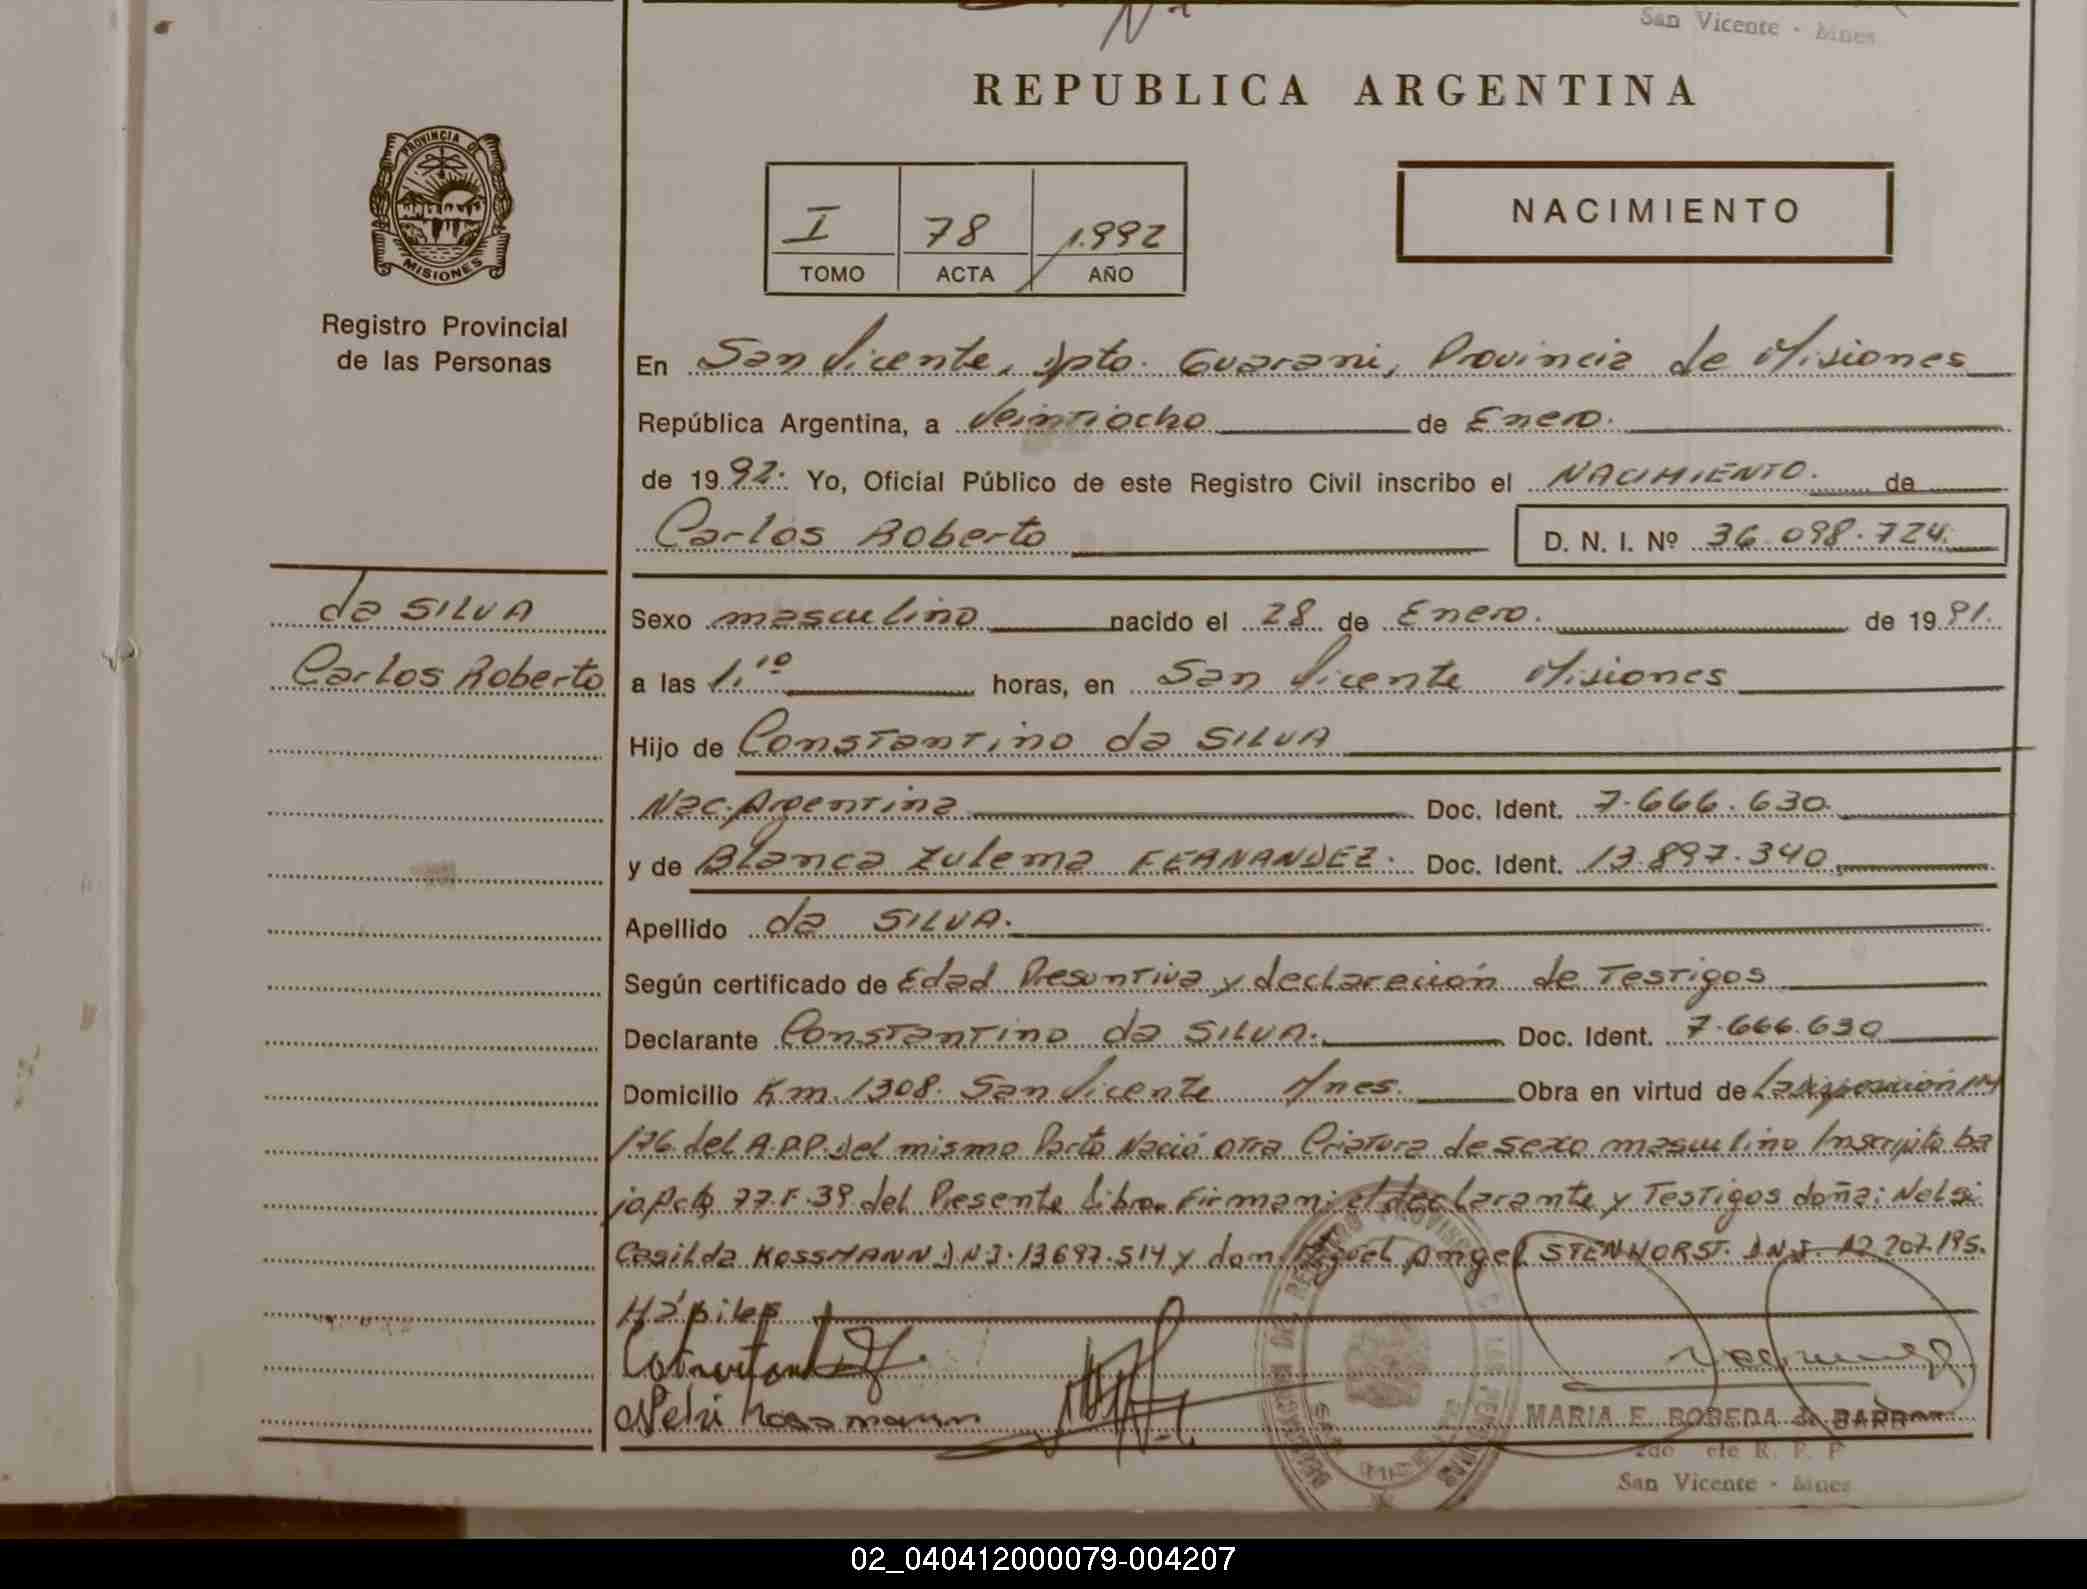 San Vicente - Mnes
REPUBLICA ARGENTINA
PROVINCIA DE
MISIONES
Registro Provincial
de las Personas
I 78 1.992
TOMO ACTA AÑO
NACIMIENTO
En San Vicente, Dpto. Guarani, Provincia de Misiones
República Argentina, a Veintiocho de Enero.
de 1992. Yo, Oficial Público de este Registro Civil inscribo el NACIMIENTO. de
Carlos Roberto D. N. I. Nº 36.098.724.
da SILVA
Carlos Roberto
Sexo masculino nacido el 28 de Enero. de 1991.
a las 1.10 horas, en San Vicente Misiones
Hijo de Constantino da SILVA
Nac. Argentina Doc. Ident. 7.666.630.
y de Blanca Zulema FERNANDEZ. Doc. Ident. 13.897.340.
Apellido da SILVA.
Según certificado de Edad Presuntiva y declareción de Testigos
Declarante Constantino da SILVA. Doc. Ident. 7.666.630
Domicilio Km. 1308. San Vicente Mnes. Obra en virtud de
176 del A.P.P. Del mismo Parto Nació otra Criatura de sexo masculino Inscripto ba
jo Acta 77.F.39 del Presente Libro. Firman: el declarante y Testigos doña: Nelsi
Casilda KOSSMANN D.N.I. 13697.514 y don Miguel Angel STENHORST. D.N.I. 12.707.195.
Hábiles
Nelsi Kossmann
MARIA E. BOBEDA de
R. P. P
San Vicente - Mnes
02_040412000079-004207